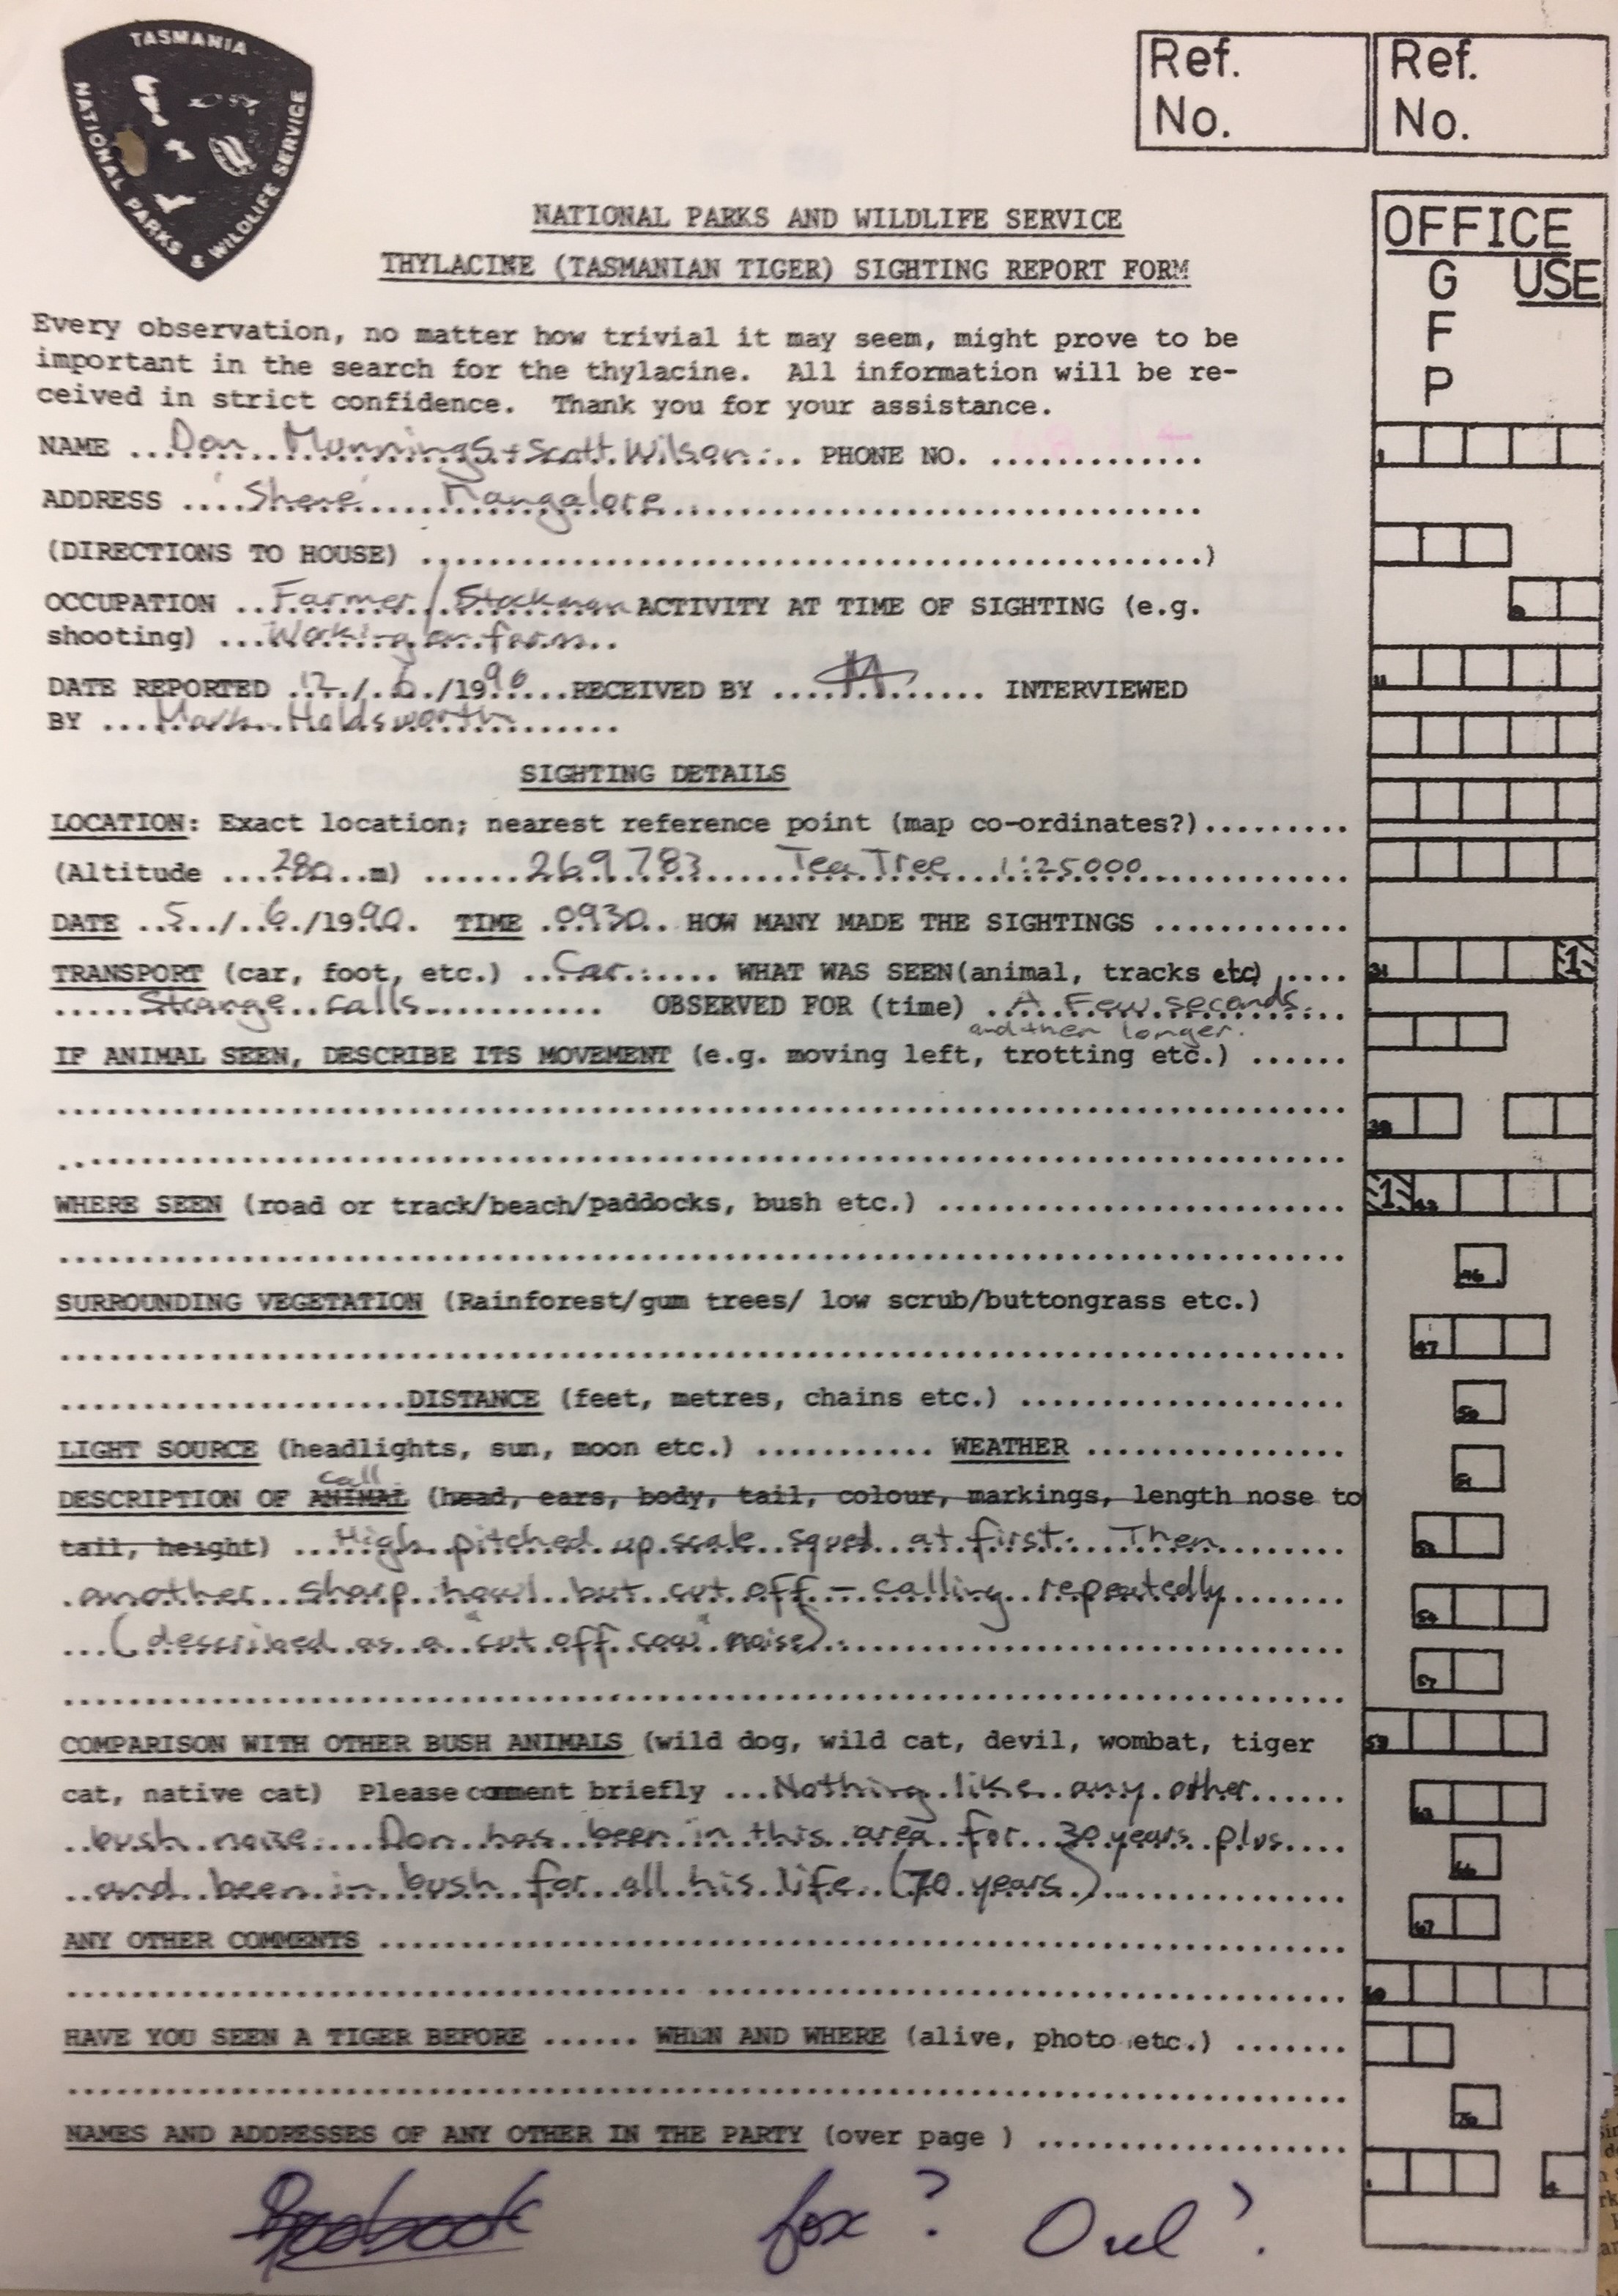 TASMANIA
NATIONAL PARKS & WILDLIFE SERVICE
Ref. No.
Ref. No.
OFFICE USE
G
F
P
NATIONAL PARKS AND WILDLIFE SERVICE
THYLACINE (TASMANIAN TIGER) SIGHTING REPORT FORM
Every observation, no matter how trivial it may seem, might prove to be
important in the search for the thylacine. All information will be re-
ceived in strict confidence. Thank you for your assistance.
NAME ...Don Munnings + Scott Wilson... PHONE NO. ............
ADDRESS ....'Shene' Mangalore............
(DIRECTIONS TO HOUSE) ............)
OCCUPATION ..Farmer / Stockman ACTIVITY AT TIME OF SIGHTING (e.g.
shooting) ...Working on farm..
DATE REPORTED .12./.6./1990....RECEIVED BY ............ INTERVIEWED
BY ...Mark Holdsworth......
SIGHTING DETAILS
LOCATION: Exact location; nearest reference point (map co-ordinates?).........
(Altitude ...280..m) ......269783.....Tea Tree...1:25000............
DATE ..5../..6./1990. TIME .0930.. HOW MANY MADE THE SIGHTINGS ............
TRANSPORT (car, foot, etc.) ..Car....... WHAT WAS SEEN(animal, tracks etc) .....
.....Strange calls........... OBSERVED FOR (time) ..A few seconds...
and then longer.
IF ANIMAL SEEN, DESCRIBE ITS MOVEMENT (e.g. moving left, trotting etc.) ......
WHERE SEEN (road or track/beach/paddocks, bush etc.) ............
SURROUNDING VEGETATION (Rainforest/gum trees/ low scrub/buttongrass etc.)
.....................DISTANCE (feet, metres, chains etc.) ............
LIGHT SOURCE (headlights, sun, moon etc.) ........... WEATHER ............
call
DESCRIPTION OF ANIMAL (head, ears, body, tail, colour, markings, length nose to
tail, height) ...High pitched up scale squeal at first. Then........
.another sharp howl but cut off - calling repeatedly.......
...(described as a "cut off cooi" noise)............
COMPARISON WITH OTHER BUSH ANIMALS (wild dog, wild cat, devil, wombat, tiger
cat, native cat) Please comment briefly ...Nothing like any other......
..bush noise. Don has been in this area for 30 years plus....
..and been in bush for all his life (70 years)............
ANY OTHER COMMENTS ............
HAVE YOU SEEN A TIGER BEFORE ...... WHEN AND WHERE (alive, photo etc.) .......
NAMES AND ADDRESSES OF ANY OTHER IN THE PARTY (over page ) ............
Boobook fox ? Owl ?